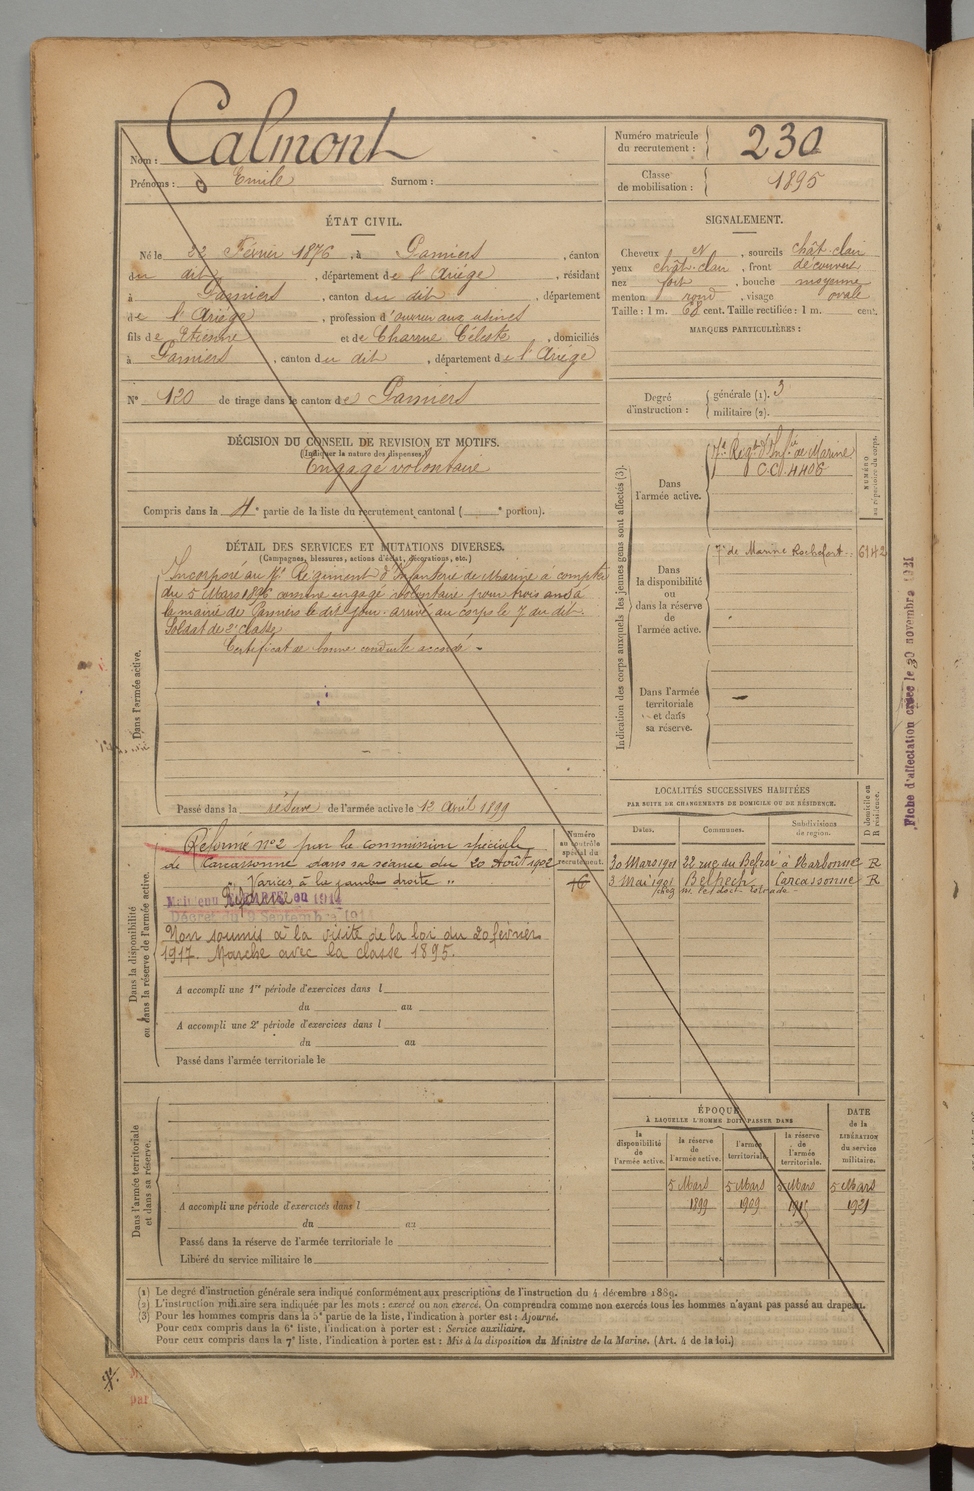 Nom : Calmont
Prénoms : Emile Surnom :
Numéro matricule du recrutement : 230
Classe de mobilisation : 1895
ÉTAT CIVIL.
Né le 22 Février 1876, à Pamiers, canton
du dit, département de l'Ariége, résidant
à Pamiers, canton du dit, département
de l'Ariége, profession d'ouvrier aux usines
fils de Etienne et de Charme Céleste, domiciliés
à Pamiers, canton du dit, département de l'Ariége
N° 120 de tirage dans le canton de Pamiers
SIGNALEMENT.
Cheveux et, sourcils chât. clair
yeux chât. clair, front découvert
nez fort, bouche moyenne
menton rond, visage ovale
Taille : 1 m. 68 cent. Taille rectifiée : 1 m. cent.
MARQUES PARTICULIÈRES :
Degré d'instruction :
générale (1). 3
militaire (2).
DÉCISION DU CONSEIL DE REVISION ET MOTIFS.
(Indiquer la nature des dispenses)
Engagé volontaire
Compris dans la 4e partie de la liste du recrutement cantonal ( e portion).
DÉTAIL DES SERVICES ET MUTATIONS DIVERSES.
(Campagnes, blessures, actions d'éclat, décorations, etc.)
Dans l'armée active.
Incorporé au Régiment d'Infanterie de Marine à compter
du 5 Mars 1896 comme engagé volontaire pour trois ans à
la mairie de Pamiers le dit jour. arrivé au corps le 7 du dit.
Soldat de 2e classe
Certificat de bonne conduite accordé -
Passé dans la réserve de l'armée active le 12 Avril 1899
Indication des corps auxquels les jeunes gens sont affectés (3).
NUMÉRO au répertoire du corps.
Dans l'armée active.
7e Régt d'Infie de Marine
Dans la disponibilité ou dans la réserve de l'armée active.
7e de Marine Rochefort. 6142
Dans l'armée territoriale et dans sa réserve.
Fiche d'affectation créée le 30 novembre 1921
Dans la disponibilité ou dans la réserve de l'armée active.
Réformé n° 2 par la commission spéciale
de Carcassonne dans sa séance du 20 Août 1902
Varices à la jambe droite "
Maintenu Réformé en 1914
Décret du 9 Septembre 1914
Non soumis à la visite de la loi du 20 février
1917. Marche avec la classe 1895.
Numéro au contrôle spécial du recrutement.
16
A accompli une 1re période d'exercices dans l
du au
A accompli une 2e période d'exercices dans l
du au
Passé dans l'armée territoriale le
LOCALITÉS SUCCESSIVES HABITÉES
PAR SUITE DE CHANGEMENTS DE DOMICILE OU DE RÉSIDENCE.
Dates. Communes. Subdivisions de région. D domicile ou R résidence.
30 Mars 1901 22 rue du Belfroi à Narbonne R
3 Mai 1901 Belpech Carcassonne R
Dans l'armée territoriale et dans sa réserve.
A accompli une période d'exercices dans l
du au
Passé dans la réserve de l'armée territoriale le
Libéré du service militaire le
ÉPOQUE
À LAQUELLE L'HOMME DOIT PASSER DANS
la disponibilité de l'armée active. la réserve de l'armée active. l'armée territoriale. la réserve de l'armée territoriale.
DATE de la LIBÉRATION du service militaire.
5 Mars 5 Mars 5 Mars 5 Mars
1899 1909 1915 1921
(1) Le degré d'instruction générale sera indiqué conformément aux prescriptions de l'instruction du 4 décembre 1889.
(2) L'instruction militaire sera indiquée par les mots : exercé ou non exercé. On comprendra comme non exercés tous les hommes n'ayant pas passé au drapeau.
(3) Pour les hommes compris dans la 5e partie de la liste, l'indication à porter est : Ajourné.
Pour ceux compris dans la 6e liste, l'indication à porter est : Service auxiliaire.
Pour ceux compris dans la 7e liste, l'indication à porter est : Mis à la disposition du Ministre de la Marine. (Art. 4 de la loi.)